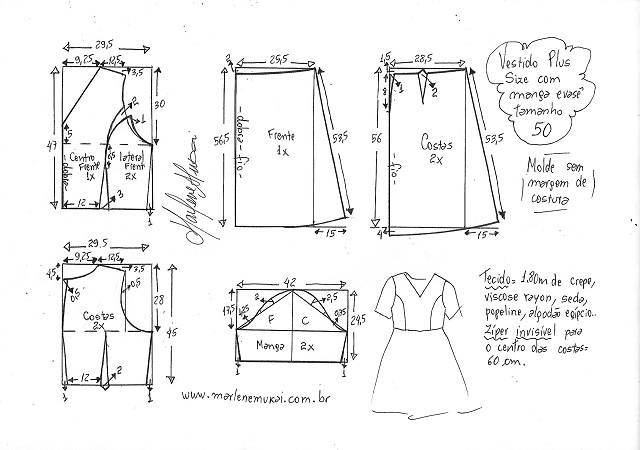 29,5
9,25 12,5
3,5
2
1
30
47
5
Centro
Frente
1x
lateral
Frente
2x
0,5
dobra
12
3
1
Marlene Mukai
2
25,5
56,5
dobra - fio
Frente
1x
53,5
15
1,5
28,5
1
8
2
56
fio
Costas
2x
53,5
4
15
Vestido Plus
Size com
manga evasê
tamanho
50
Molde sem
margem de
costura
29,5
9,25 12,5
4,5
3,5
0,5
0,5
28
45
Costas
2x
12
2
1
1
42
17,5
2
2,5
1,25
0,75
24,5
F C
Manga 2x
1
1
www.marlenemukai.com.br
Tecido= 1.80m de crepe,
viscose rayon, seda,
popeline, algodão egípcio..
Zíper invisível para
o centro das costas=
60 cm.